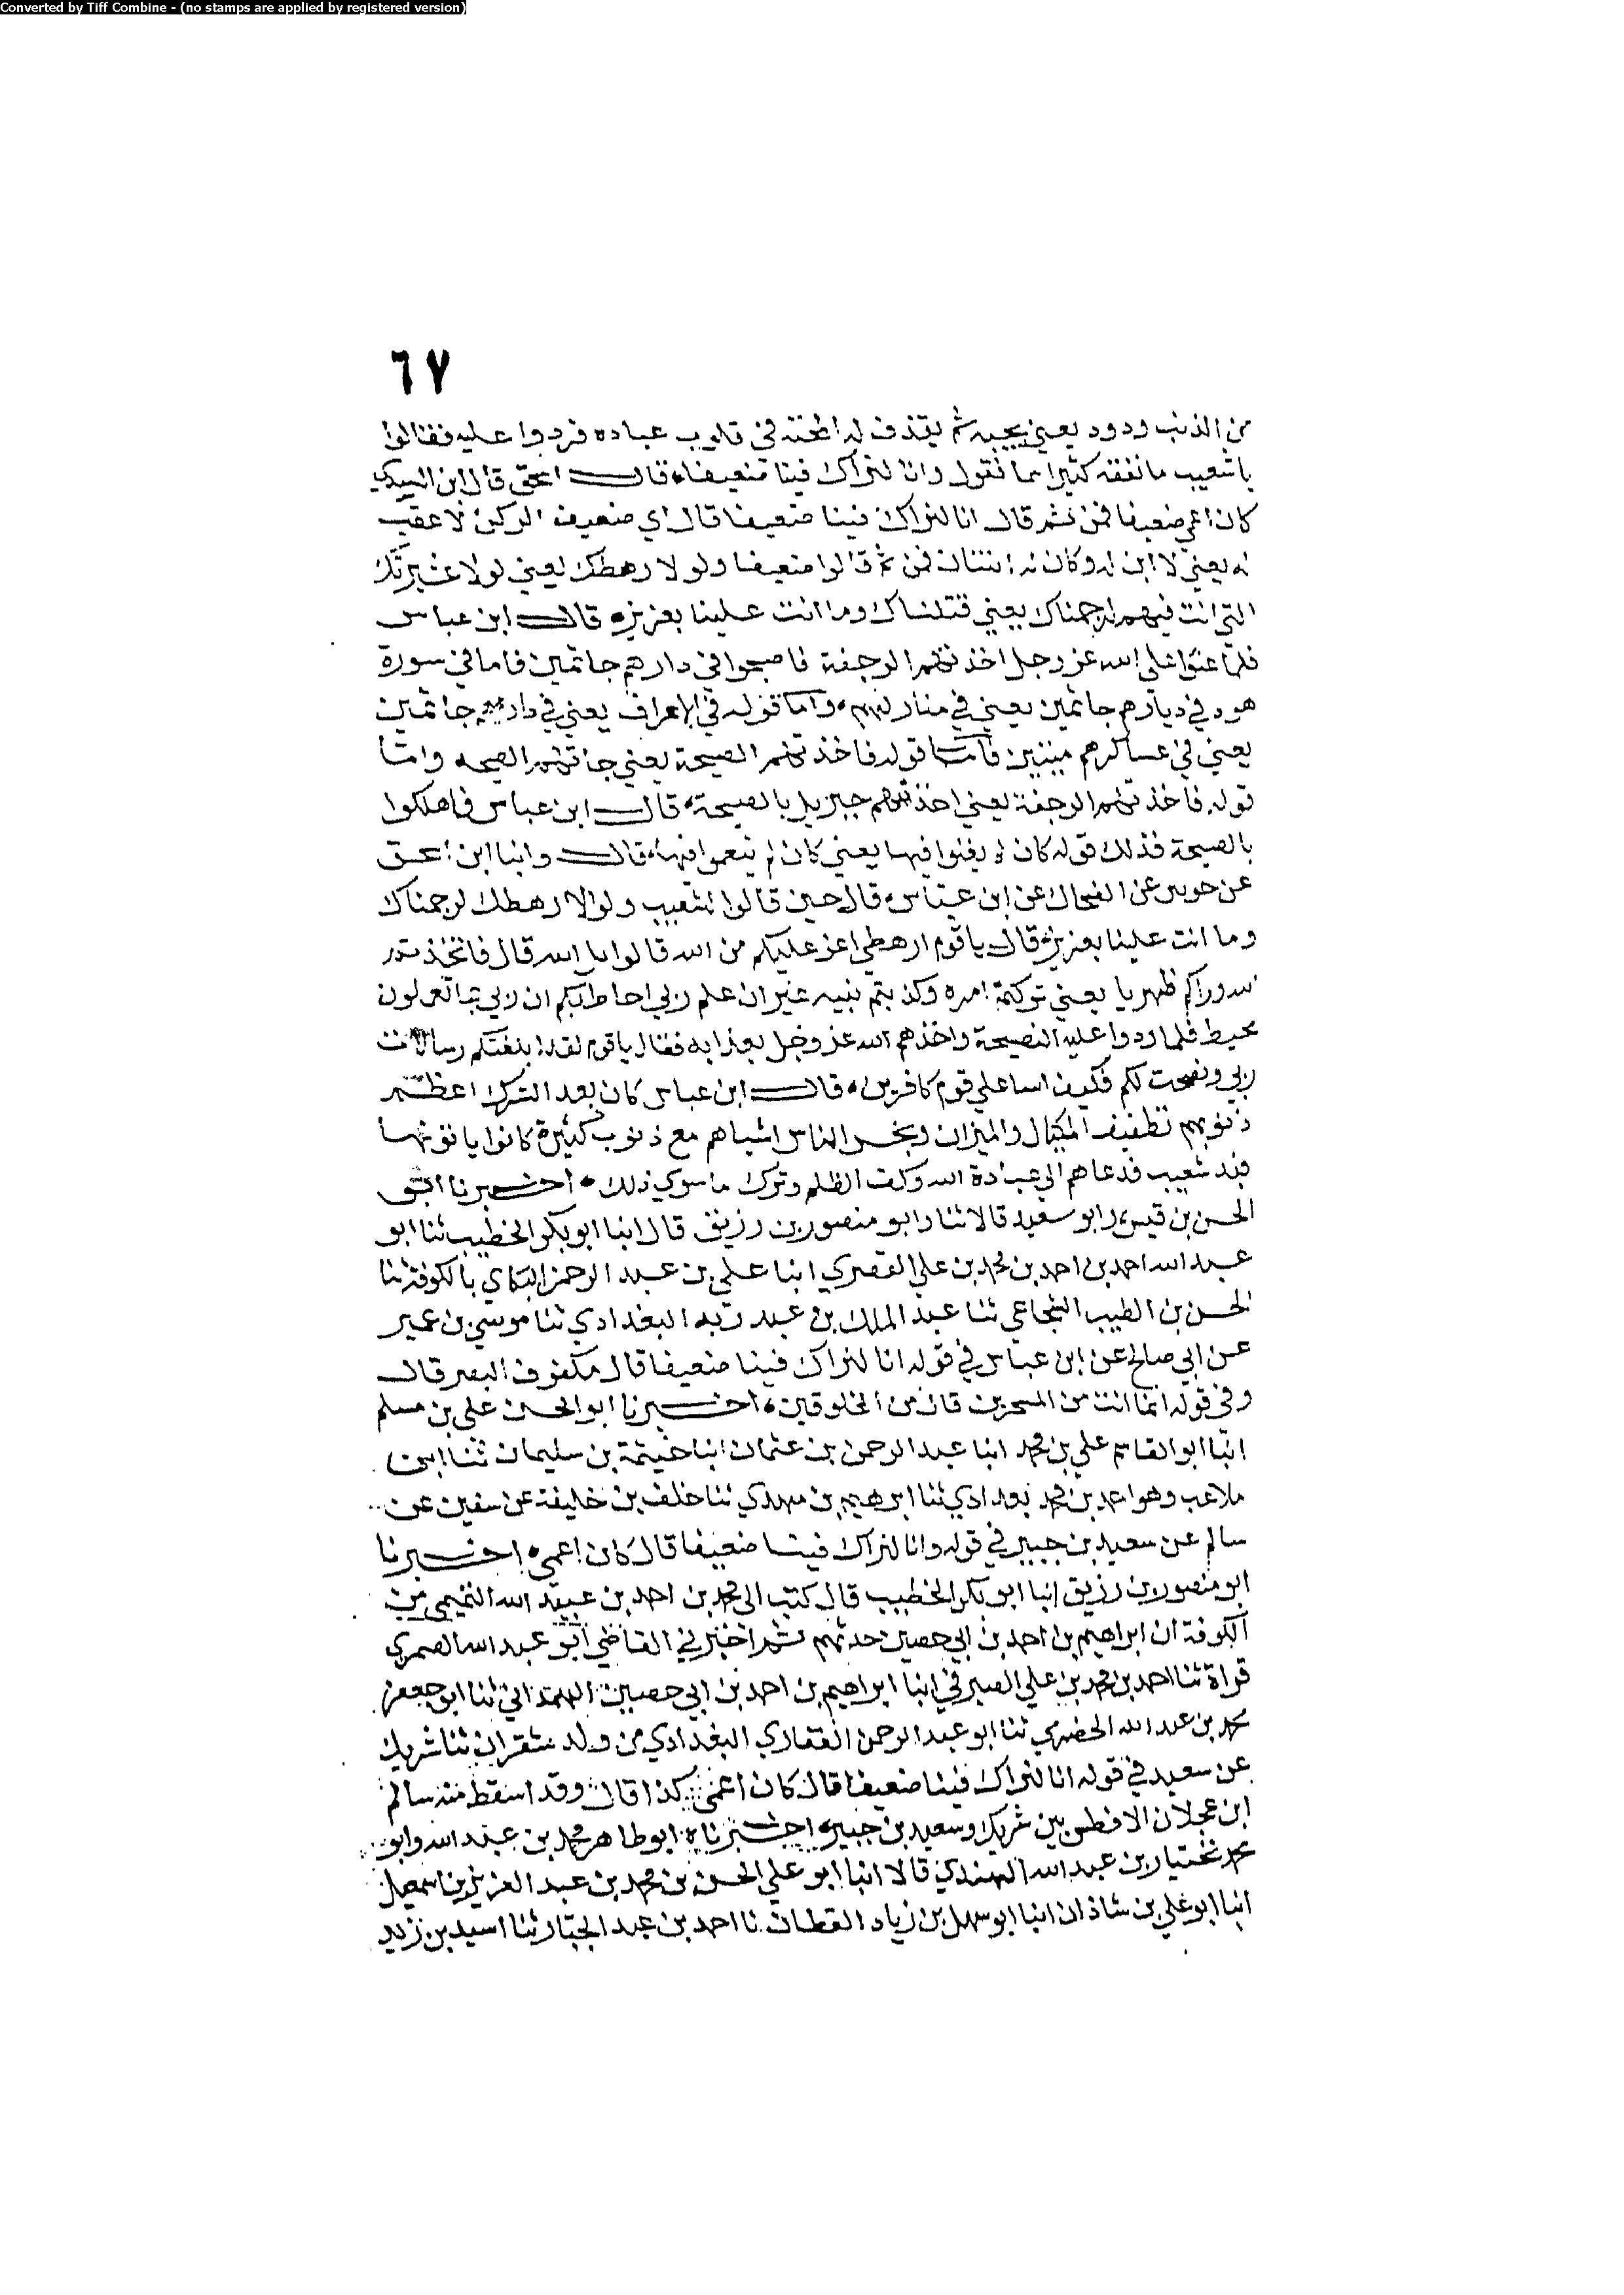 Converted by Tiff Combine - (no stamps are applied by registered version)
٦٧
من الذنب ودود يعني يحبه ثم يقذف له المحبة في قلوب عباده فردوا عليه فقالوا
يا شعيب ما نفقه كثيرا مما نقول وانا لنراك فينا ضعيفا قال اسحق قال ابن السدي
كان اعمى ضعيفا فمن ثم قال انا لنراك فينا ضعيفا قال اي ضعيف الركن لا عقب
له يعني لا ابن له وكان له ابنتان فمن ثم قالوا ضعيفا ولولا رهطك يعني لولا عشيرتك
التي انت فيهم لرجمناك يعني قتلناك وما انت علينا بعزيز قال ابن عباس
فلما عتوا على الله عز وجل اخذتهم الرجفة فاصبحوا في دارهم جاثمين فاما في سورة
هود في ديارهم جاثمين يعني في منازلهم واما قوله في الاعراف يعني في دارهم جاثمين
يعني في عساكرهم ميتين فاما قوله فاخذتهم الصيحة يعني جاتهم الصيحه واما
قوله فاخذتهم الرجفة يعني اخذتهم جبريل بالصيحة قال ابن عباس فاهلكوا
بالصيحة فذلك قوله كان لم يغنوا فيها يعني كان لم ينعموا فيها قال وانبا ابن اسحق
عن جويبر عن الضحاك عن ابن عباس قال حين قالوا لشعيب ولولا رهطك لرجمناك
وما انت علينا بعزيز قال يا قوم ارهطي اعز عليكم من الله قالوا بل الله قال فاتخذتم
الله وراكم ظهريا يعني تركتم امره وكذبتم نبيه غير ان علم ربي احاط بكم ان ربي بما تعملون
محيط فلما ردوا عليه النصيحة واخذهم الله عز وجل بعذابه فقال يا قوم لقد ابلغتكم رسالات
ربي ونصحت لكم فكيف اسا على قوم كافرين قال ابن عباس كان بعد الشرك اعظم
ذنوبهم تطفيف المكيال والميزان وبخس الناس اشياهم مع ذنوب كثيرة كانوا ياتونها
فبدا شعيب فدعاهم الى عبادة الله وكف الظلم وترك ما سوى ذلك اخبرنا ابو
الحسن بن قيس وابو سعيد قالا ثنا وابو منصور بن رزيق قال انبا ابو بكر الخطيب ثنا ابو
عبد الله احمد بن احمد بن محمد بن علي القصري انبا علي بن عبد الرحمن البكاي بالكوفة ثنا
الحسن بن الطيب الشجاعي ثنا عبد الملك بن عبد ربه البغدادي ثنا موسى بن عمير
عن ابي صالح عن ابن عباس في قوله انا لنراك فينا ضعيفا قال مكفوف البصر قال
وفي قوله انما انت من المسحرين قال من المخلوقين اخبرنا ابو الحسن علي بن مسلم
انبا ابو القاسم علي بن محمد انبا عبد الرحمن بن عثمان انبا خيثمة بن سليمان ثنا ابن
ملاعب وهو احمد بن محمد بغدادي ثنا ابرهيم بن مهدي ثنا خلف بن خليفة عن سفين عن
سالم عن سعيد بن جبير في قوله وانا لنراك فينا ضعيفا قال كان اعمى اخبرنا
ابو منصور بن رزيق انبا ابو بكر الخطيب قال كتب الى محمد بن احمد بن عبيد الله التميمي من
الكوفة ان ابراهيم بن احمد بن ابي حصين حدثهم ثم اخبرني القاضي ابو عبد الله الصمري
قراة ثنا احمد بن محمد بن علي الصيرفي انبا ابراهيم بن احمد بن ابي حصين الهمداني ثنا ابو جعفر
محمد بن عبد الله الحضرمي ثنا ابو عبد الرحمن الغفاري البغدادي من ولد شقران ثنا شريك
عن سعيد في قوله انا لنراك فينا ضعيفا قال كان اعمى كذا قال وقد اسقط منه سالم
ابن عجلان الافطس بين شريك وسعيد بن جبير اخبرناه ابو طاهر محمد بن عبد الله وابو
محمد بختيار بن عبد الله الهندي قالا انبا ابو علي الحسن بن محمد بن عبد العزيز بن اسمعيل
انبا ابو علي بن شاذان انبا ابو سهل بن زياد القطان نا احمد بن عبد الجبار ثنا اسيد بن زيد